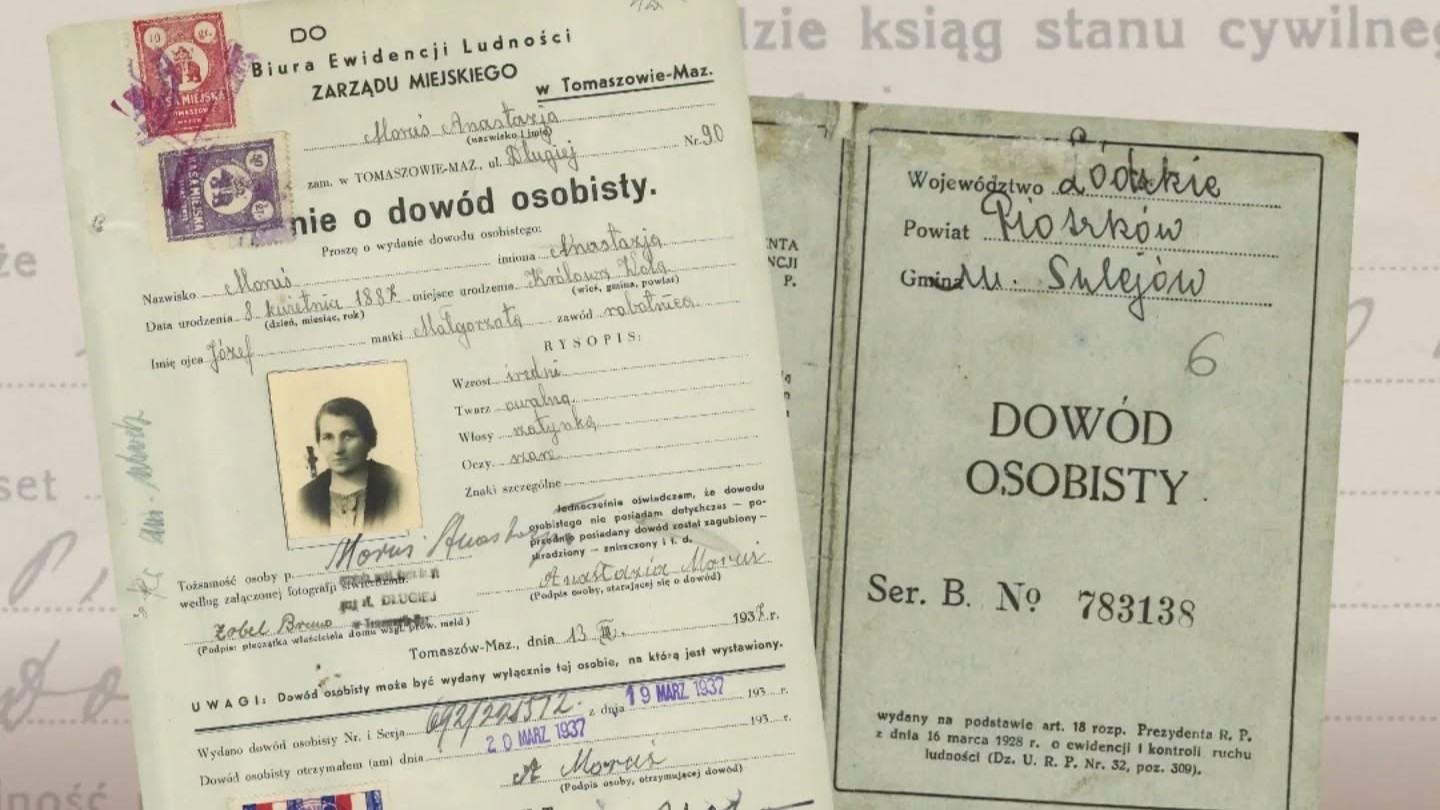 dzie ksiąg stanu cywilneg
że
set
ność
10 gr.
KASA MIEJSKA
TOMASZÓW
MAZOW.
KASA MIEJSKA
gr.
DO
Biura Ewidencji Ludności
ZARZĄDU MIEJSKIEGO
w Tomaszowie-Maz.
Moruś Anastazja
(nazwisko i imię)
zam. w TOMASZOWIE-MAZ., ul. Długiej Nr. 90
nie o dowód osobisty.
Proszę o wydanie dowodu osobistego:
Nazwisko Moruś imiona Anastazja
Data urodzenia 8 kwietnia 1887 miejsce urodzenia Królowa Wola
(dzień, miesiąc, rok) (wieś, gmina, powiat)
Imię ojca Józef matki Małgorzata zawód robotnica
RYSOPIS:
Wzrost średni
Twarz owalna
Włosy szatynka
Oczy szare
Znaki szczególne
Jednocześnie oświadczam, że dowodu
osobistego nie posiadam dotychczas — po-
przednio posiadany dowód został zagubiony —
skradziony — zniszczony i t. d.
Tożsamość osoby p. Moruś Anastazja
według załączonej fotografji stwierdzam.
DŁUGIEJ
Anastazia Moruś
(Podpis osoby, starającej się o dowód)
Zobel Bruno
(Podpis: pieczątka właściciela domu wzgl. prow. meld.)
Tomaszów-Maz., dnia 13 III. 1937 r.
UWAGI: Dowód osobisty może być wydany wyłącznie tej osobie, na którą jest wystawiony.
Wydano dowód osobisty Nr. i Serja 692/221572. z dnia 19 MARZ 1937 193 r.
Dowód osobisty otrzymałem (am) dnia 20 MARZ 1937 193 r.
A Moruś
(Podpis osoby, otrzymującej dowód)
NTA
NCJI
P.
Województwo Łódzkie
Powiat Piotrków
Gmina m. Sulejów
6
DOWÓD
OSOBISTY
Ser. B. № 783138
wydany na podstawie art. 18 rozp. Prezydenta R. P.
z dnia 16 marca 1928 r. o ewidencji i kontroli ruchu
ludności (Dz. U. R. P. Nr. 32, poz. 309).